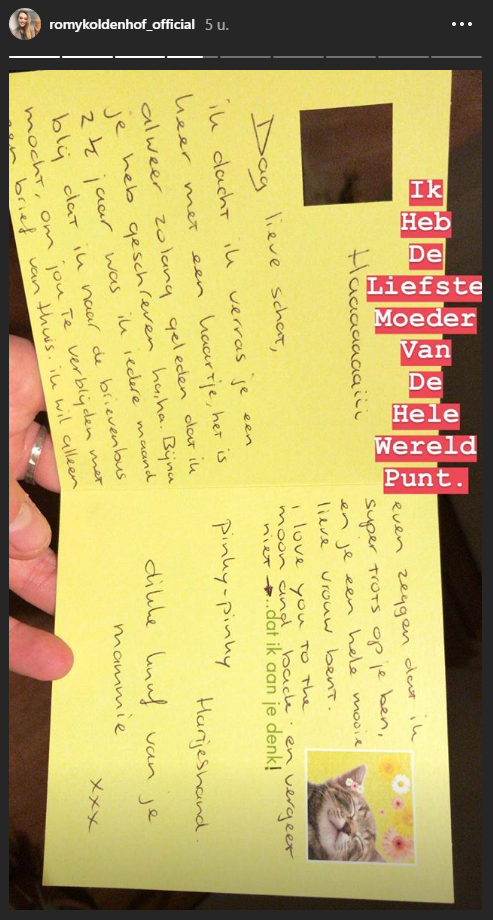 romykoldenhof_official 5 u.
Ik
Heb
De
Liefste
Moeder
Van
De
Hele
Wereld
Punt.
Haaaaaaaiii
Dag lieve schat,
ik dacht ik verras je een
keer met een kaartje, het is
alweer zolang geleden dat ik
je heb geschreven haha. Bijna
2½ jaar was ik iedere maand
blij dat ik naar de brievenbus
mocht, om jou te verblijden met
een brief van thuis. ik wil alleen
even zeggen dat ik
super trots op je ben,
en je een hele mooie
lieve vrouw bent.
i love you to the
moon and back. en vergeet
niet → ...dat ik aan je denk!
pinky-pinky Hartjeshand.
dikke knuf van je
mammie
xxx